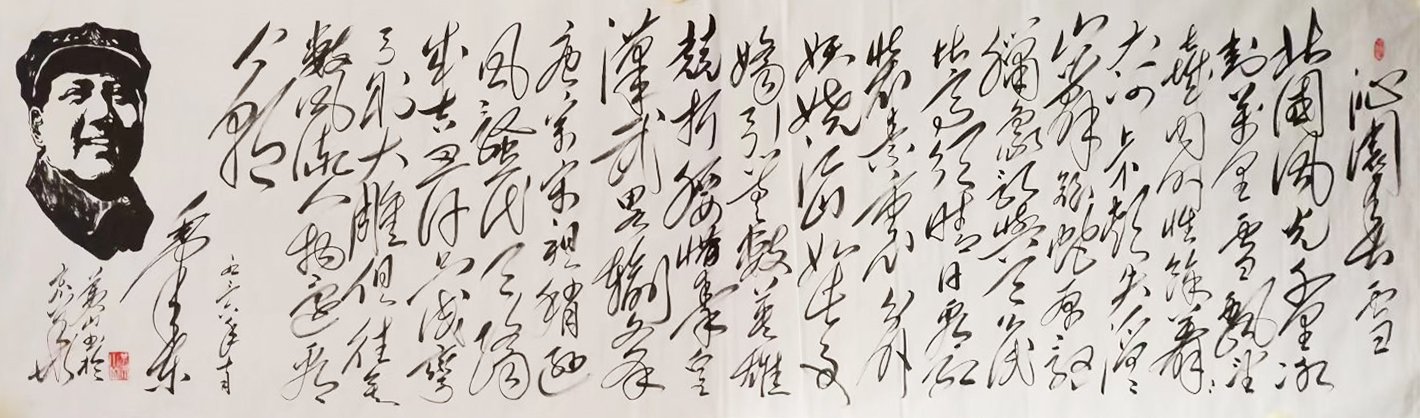 沁園春雪
北國風光千里冰
封萬里雪飄望
長城内外惟餘莽莽
大河上下頓失滔滔
山舞銀蛇原馳
蠟象欲與天公試
比高須晴日看紅
裝素裹分外
妖嬈江山如此多
嬌引無數英雄
競折腰惜秦皇
漢武略輸文采
唐宗宋祖稍遜
風騷一代天驕
成吉思汗只識彎
弓射大雕俱往矣
數風流人物還看
今朝
毛澤東